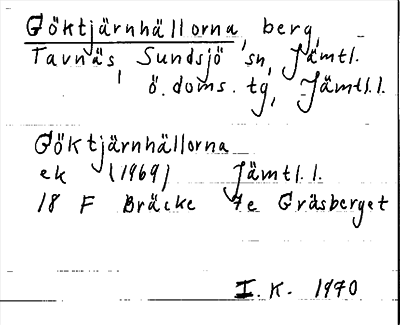 Göktjärnhällorna, berg,
Tavnäs, Sundsjö sn, Jämtl.
ö. doms. tg, Jämtl.l.
Göktjärnhällorna
ek (1969) Jämtl.l.
18 F Bräcke 7e Gräsberget
I.K. 1970